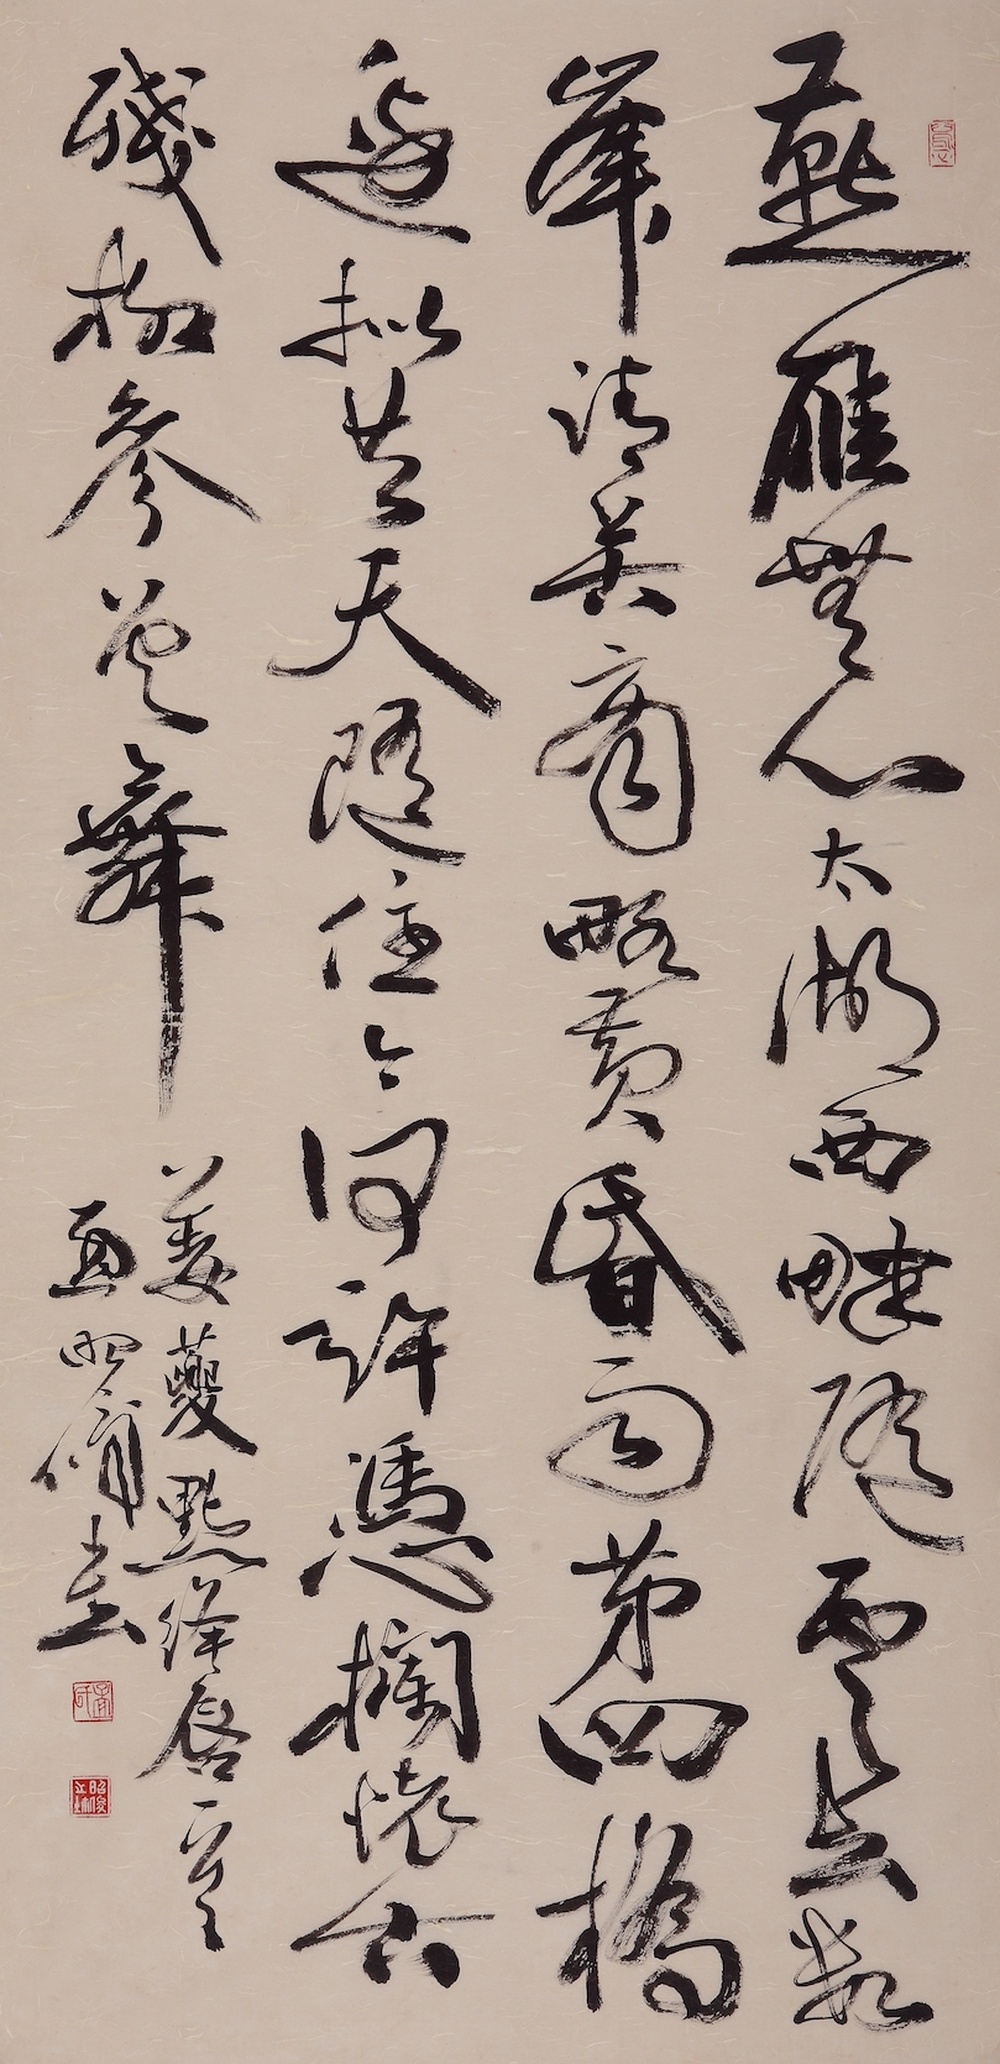 燕雁無心太湖西畔隨雲去數
峯清苦商略黃昏雨第四橋
邊擬共天隨住今何許憑欄懷古
殘柳參差舞
姜夔點絳唇一
昭 書